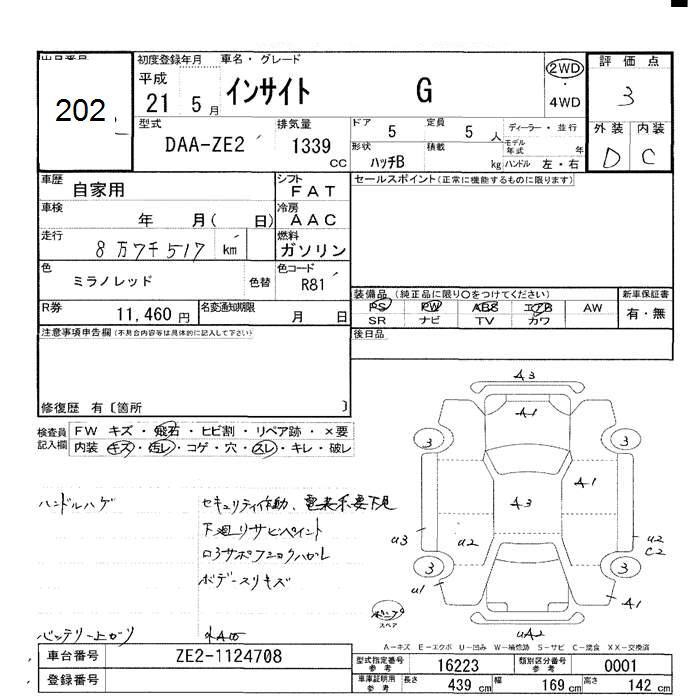 出品番号 初度登録年月 車名・グレード 2WD 評価点
202 平成 21 5月 インサイト G 4WD 3
型式 DAA-ZE2 排気量 1339 CC
ドア 5 定員 5人 ディーラー・並行 外装 内装
形状 ハッチB 積載 kg モデル年式 年 ハンドル 左・右 D C
車歴 自家用 シフト FAT セールスポイント(正常に機能するものに限ります)
車検 年 月( 日) 冷房 AAC
走行 8万7千517 km 燃料 ガソリン
色 ミラノレッド 色替 色コード R81
R券 11,460円 名変通知期限 月 日
装備品 (純正品に限り○をつけてください) 新車保証書
PS PW ABS エアB AW 有・無
SR ナビ TV カワ
注意事項申告欄(不具合内容等は具体的に記入して下さい) 後日品
修復歴 有〔箇所 〕
検査員記入欄 FW キズ・飛石・ヒビ割・リペア跡・×要
内装 キズ・汚レ・コゲ・穴・スレ・キレ・破レ
ハンドルハゲ セキュリティ作動、電装系要下見
下廻りサビペイント
ボデースリキズ
バッテリー上がり
A3
A1
3 3
A3 A1
U3 U2 U2
C2
3 3
U1 A1
スペア UA2
A－キズ E－エクボ U－凹み W－補修跡 S－サビ C－腐食 XX－交換済
車台番号 ZE2-1124708 型式指定番号 参考 16223 類別区分番号 参考 0001
登録番号 車庫証明用 参考 長さ 439 cm 幅 169 cm 高さ 142 cm